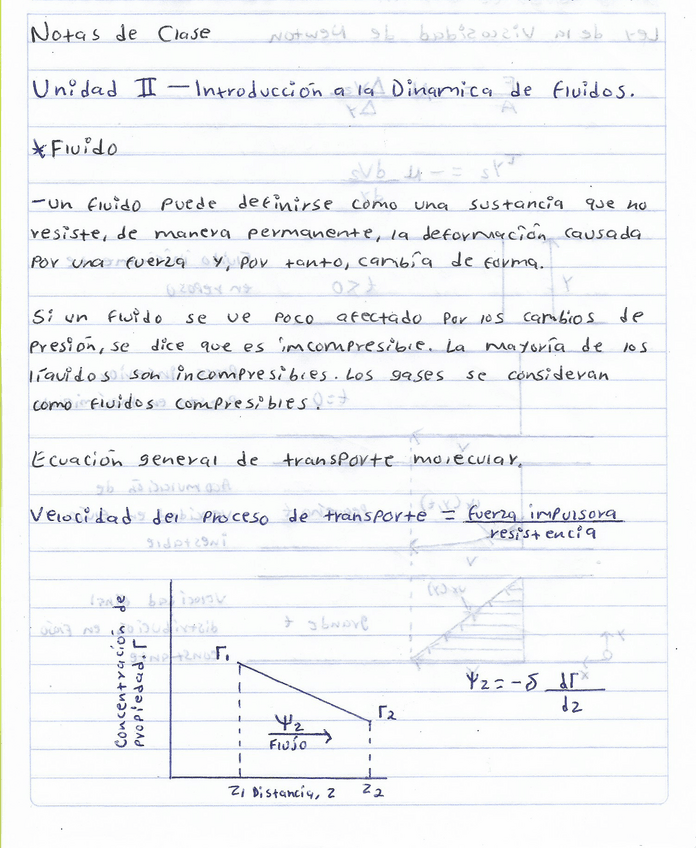 Notas de Clase
Unidad II — Introducción a la Dinamica de fluidos.
*Fluido
-un fluido puede definirse como una sustancia que no
resiste, de manera permanente, la deformación causada
por una fuerza y, por tanto, cambía de forma.
Si un fluido se ve poco afectado por los cambios de
presión, se dice que es imcompresible. La mayoría de los
líquidos son incompresibles. Los gases se consideran
como fluidos compresibles.
Ecuación general de transporte molecular.
Velocidad del proceso de transporte = fuerza impulsora
resistencia
Concentración de
propiedad. Γ
Γ1
Γ2
Ψz
Flujo
Z1 Distancia, z Z2
Ψz = -δ dΓ
dz